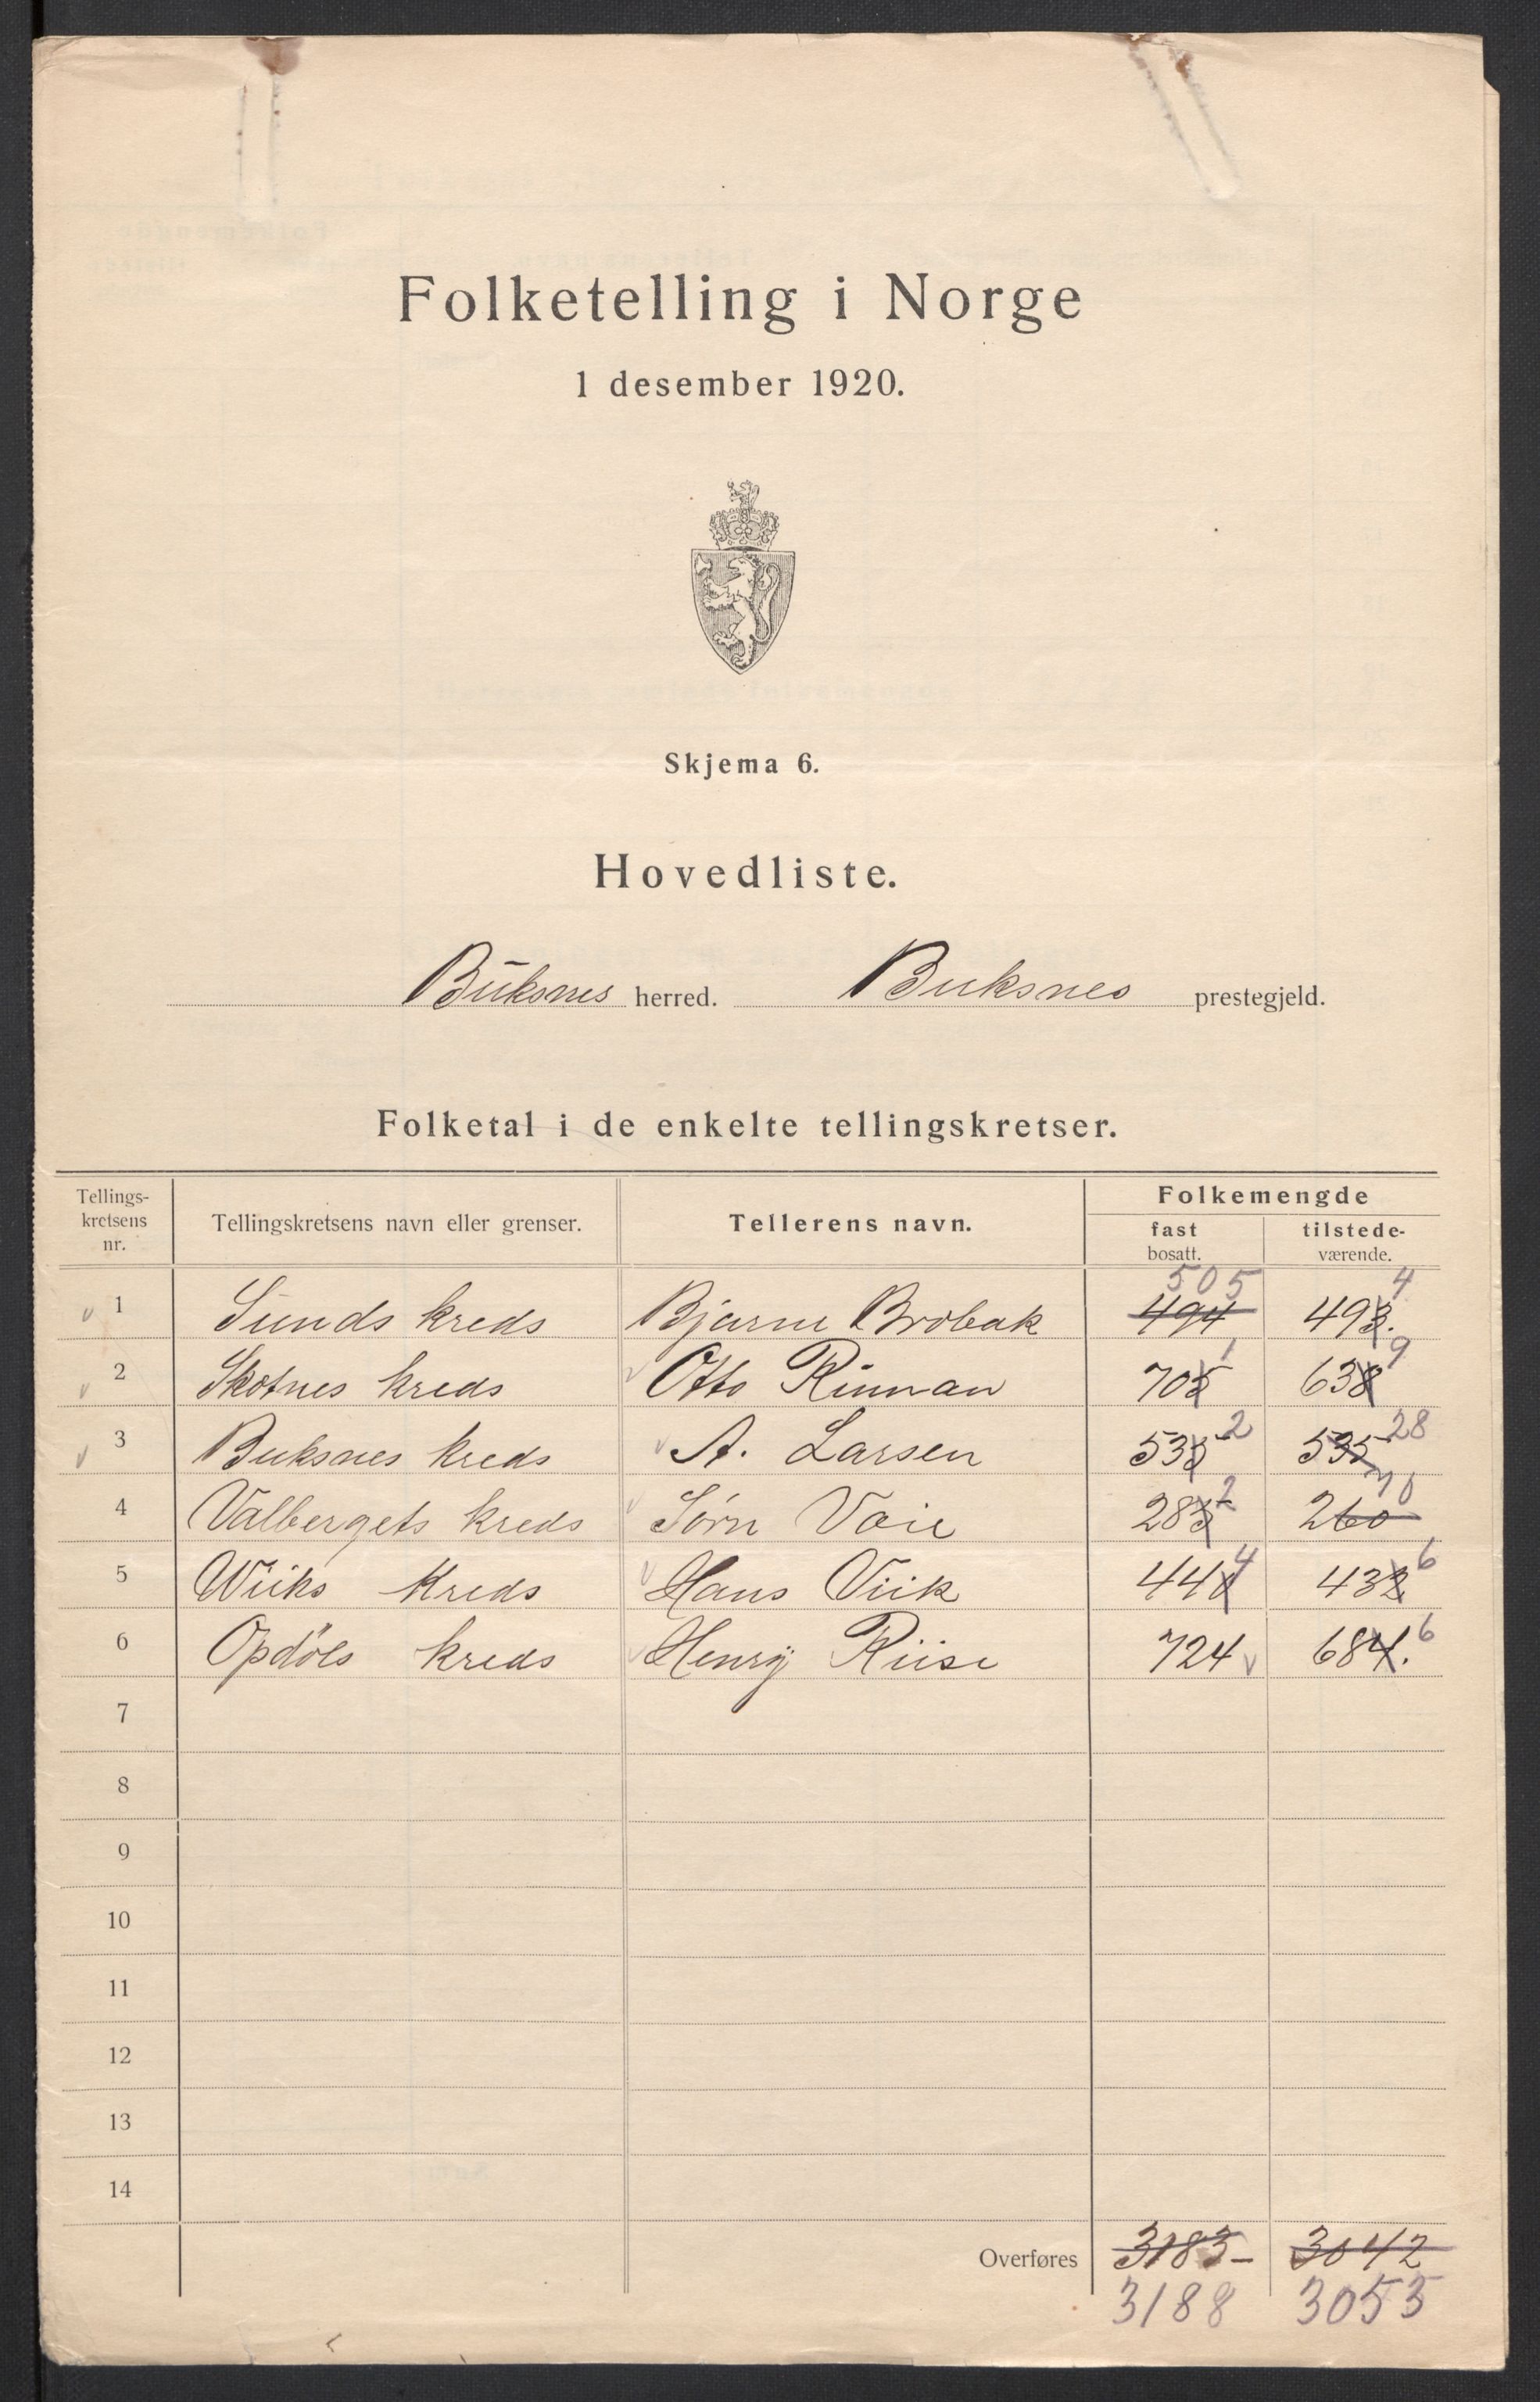 Folketelling i Norge
1 desember 1920.
Skjema 6.
Hovedliste.
Buksnes herred. Buksnes prestegjeld.
Folketal i de enkelte tellingskretser.
Tellings-kretsens nr. Tellingskretsens navn eller grenser. Tellerens navn. Folkemengde fast bosatt. tilstede-værende.
505 4
1 Sunds kreds Bjarne Brobak 494 493.
1 9
2 Skotnes kreds Otto Rinnan 705 638
2 28
3 Buksnes kreds A. Larsen 535 535
2 70
4 Valbergets kreds Sørn Voie 285 260
4 6
5 Wiiks Kreds Hans Viik 440 432
6
6 Opdöls kreds Henry Riise 724 684.
7
8
9
10
11
12
13
14
Overføres 3183- 3042
3188 3053